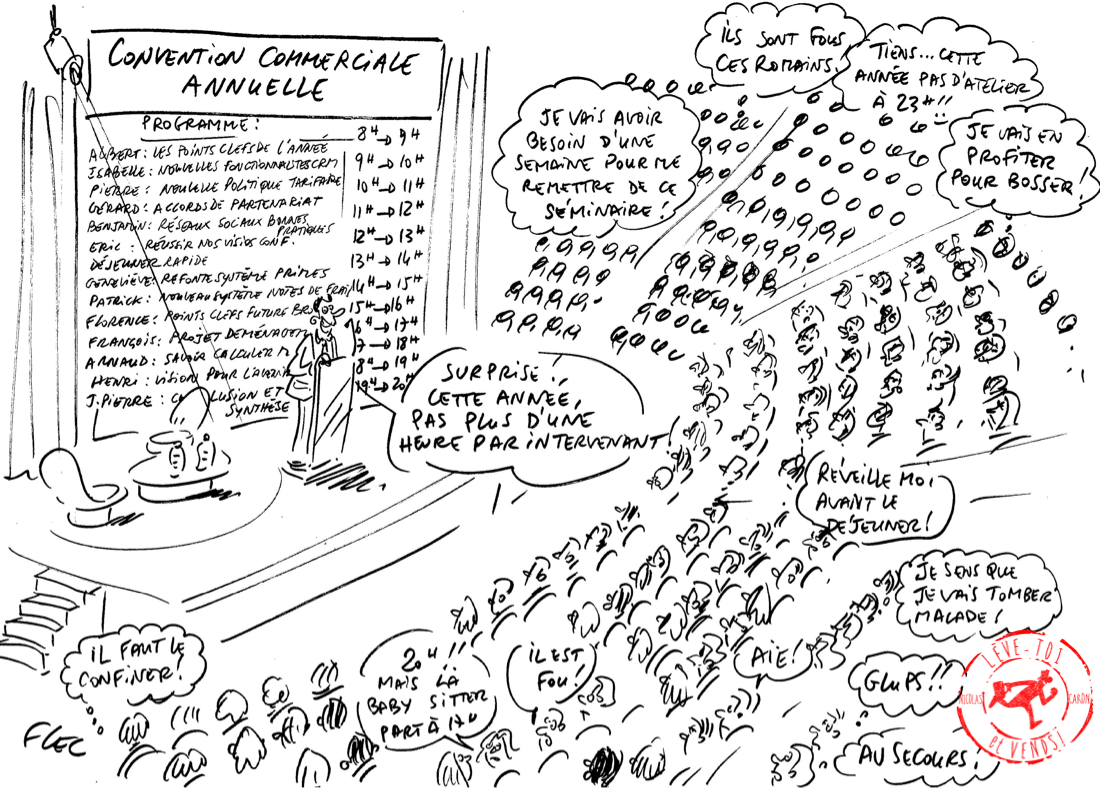 CONVENTION COMMERCIALE
ANNUELLE
PROGRAMME:
ALBERT: LES POINTS CLEFS DE L'ANNÉE 8H → 9H
ISABELLE: NOUVELLES FONCTIONNALITES CRM 9H → 10H
PIERRE: NOUVELLE POLITIQUE TARIFAIRE 10H → 11H
GÉRARD: ACCORDS DE PARTENARIAT 11H → 12H
BENJAMIN: RÉSEAUX SOCIAUX BONNES
PRATIQUES
ERIC: RÉUSSIR NOS VISIOS CONF. 12H → 13H
DÉJEUNER RAPIDE 13H → 14H
GENEVIÈVE: REFONTE SYSTÈME PRIMES
PATRICK: NOUVEAU SYSTÈME NOTES DE FRAIS 14H → 15H
FLORENCE: POINTS CLEFS FUTURE 15H → 16H
FRANÇOIS: PROJET DÉMÉNAGEM 16H → 17H
ARNAUD: SAVOIR CALCULER 17 → 18H
HENRI: VISION POUR L'AVENIR 18H → 19H
J.PIERRE: CLUSION ET 19H → 20H
SYNTHÈSE
SURPRISE..,
CETTE ANNÉE,
PAS PLUS D'UNE
HEURE PAR INTERVENANT!
JE VAIS AVOIR
BESOIN D'UNE
SEMAINE POUR ME
REMETTRE DE CE
SÉMINAIRE!
ILS SONT FOUS
CES ROMAINS.
TIENS... CETTE
ANNÉE PAS D'ATELIER
À 23H!!
JE VAIS EN
PROFITER
POUR BOSSER!
RÉVEILLE MOI
AVANT LE
DÉJEUNER!
JE SENS QUE
JE VAIS TOMBER
MALADE!
IL FAUT LE
CONFINER!
20H!!
MAIS LA
BABY SITTER
PART À 17H
IL EST
FOU!
AÏE!
GLUPS!!
AU SECOURS!
FLEC
LÈVE-TOI
NICOLAS CARON
et VENDS!